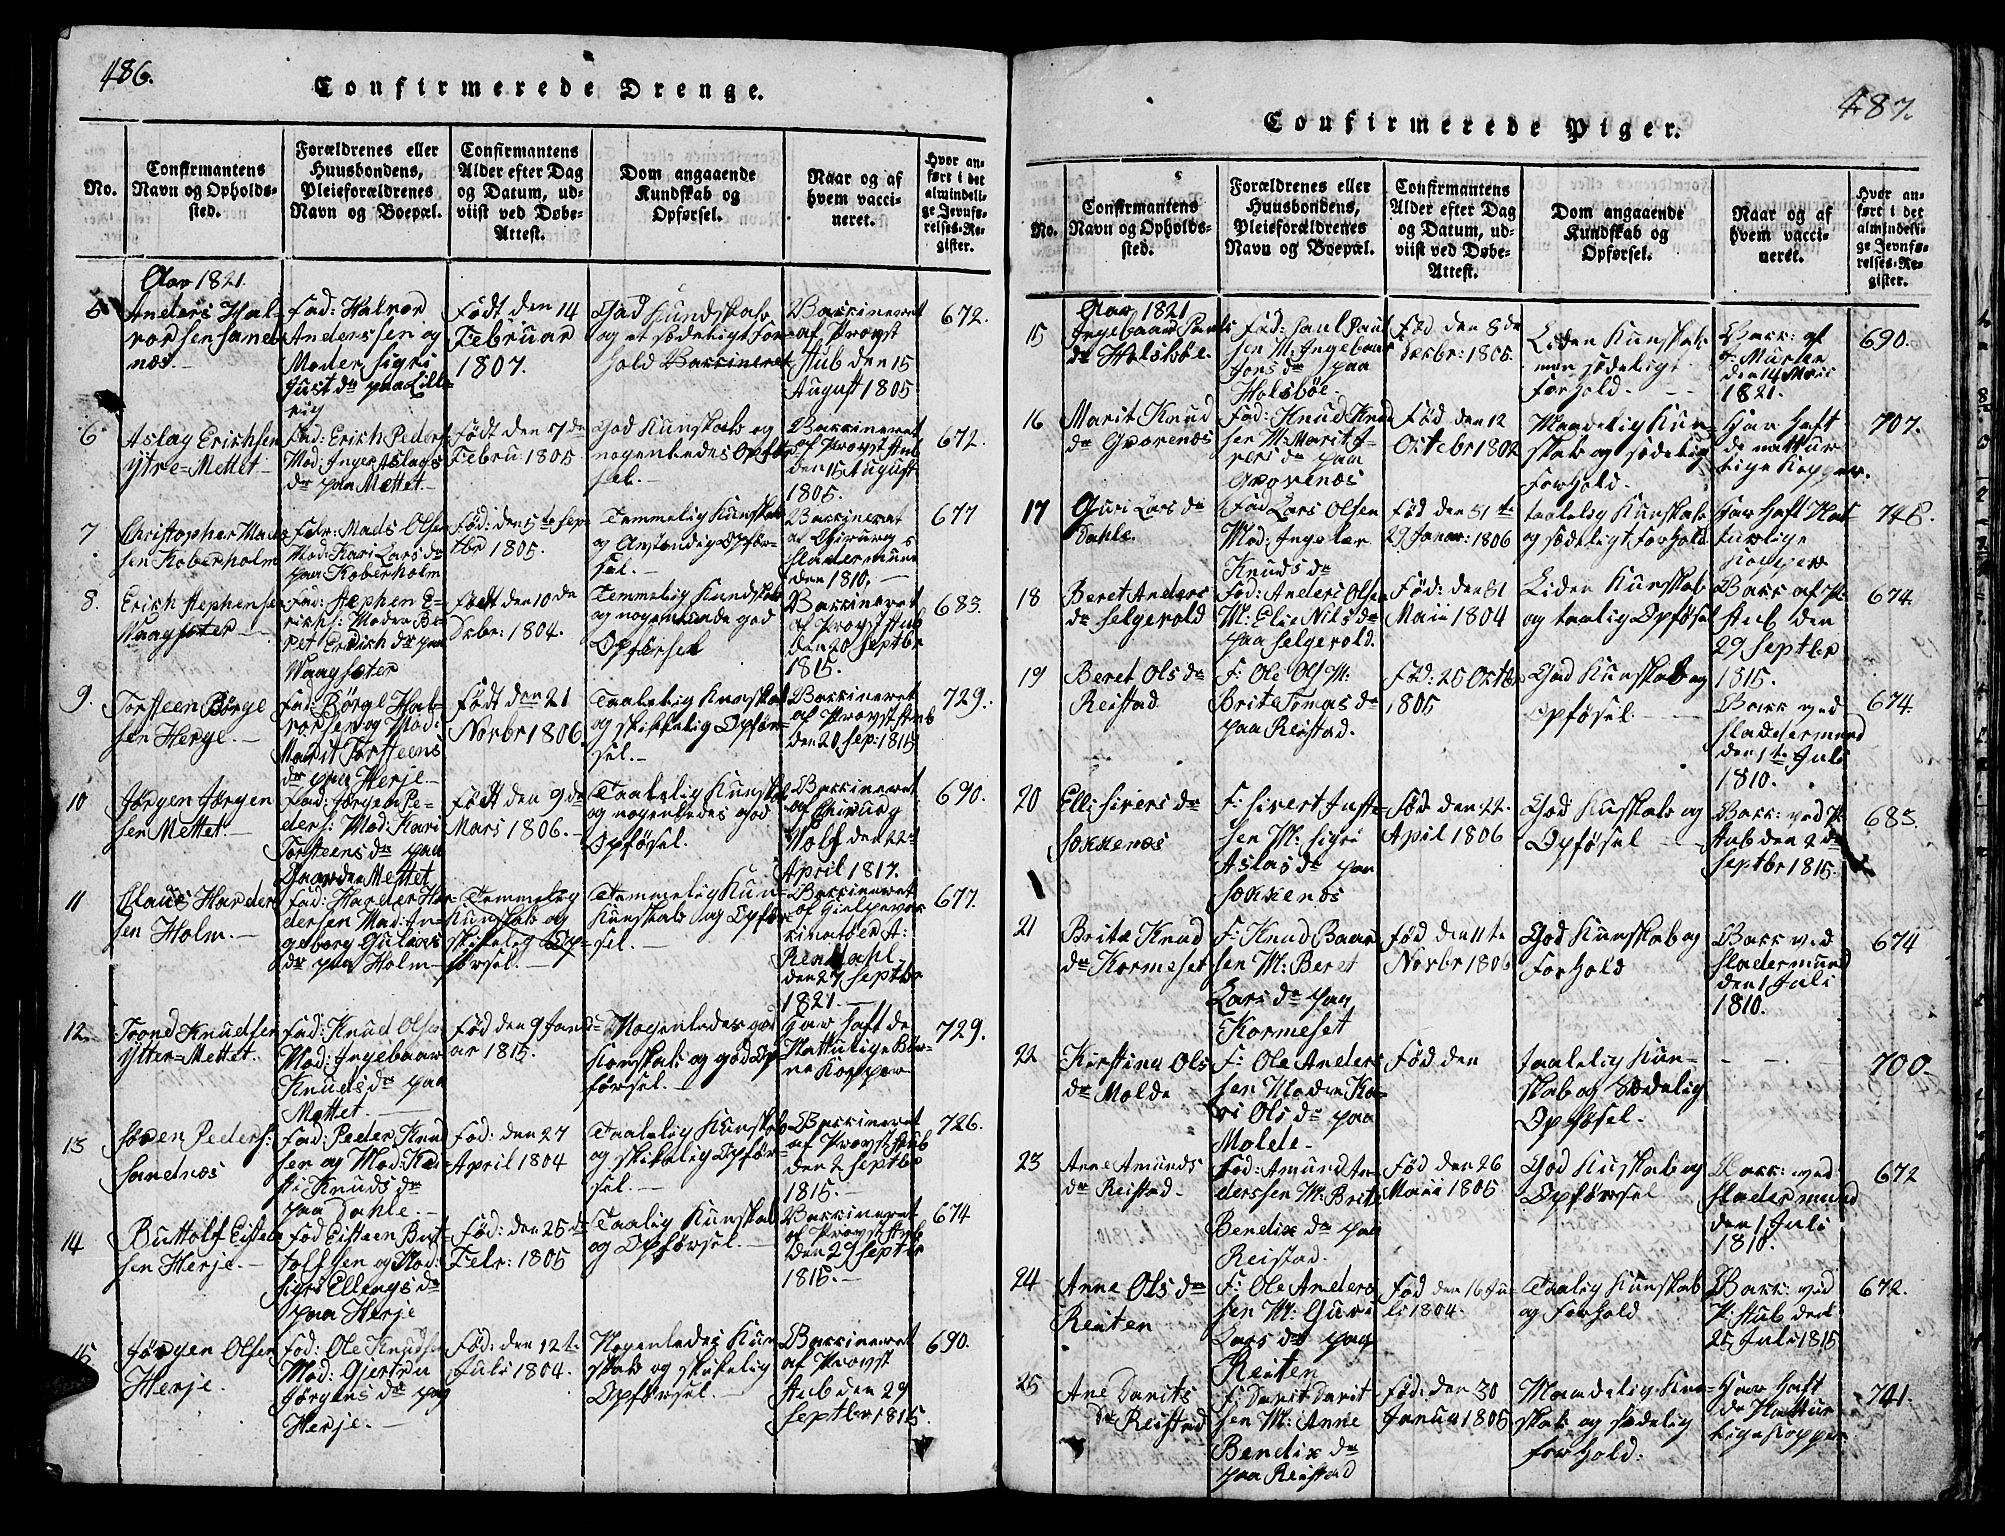 486.
Confirmerede Drenge.
No.
Confirmantens
Navn og Opholds-
sted.
Forældrenes eller
Huusbondens,
Pleieforældrenes
Navn og Boepæl.
Confirmantens
Alder efter Dag
og Datum, ud-
viist ved Døbe-
Attest.
Dom angaaende
Kundskab og
Opførsel.
Naar og af
hvem vacci-
neret.
Hvor an-
ført i det
almindeli-
ge Jevnfø-
relses-Re-
gister.
Aar 1821
5
Anders Hal-
vorsen Sand-
næs.
Fad: Halvor
Anderssen og
Moder Sigri
Just dr paa Lille-
vig
Født den 14
Februar
1807.
God Kundskab
og et sædeligt For-
hold Vaccineret
Vaccineret
af Provst
Stub den 15
August 1805
672.
6
Aslag Erichsen
ytre-Mettet
Fad: Erich Peders
Mod: Inger Aslags
dr paa Mettet
Født den 7 de
Febru: 1805
God Kunskab og
nogenledes Opfør
sel.
Vaccineret
af Provst Stub
den 15 August
1805.
672.
7
Christopher Mads
sen Koberholm
Felr: Mads Olsen
Mod: Kari Lars dr
paa Koberholm
Fød: den 5 te Sep-
tbr 1805.
Temmelig Kunskab
og Anstændig Opfør-
sel.
Vaccineret
af Chirurg
Sladermund
den 1810.
677
8.
Erich Stephensen
Waagsæter
Fad: Stephen E-
richs: Moder Be-
ret Erich dr paa
Waagsæter
Født den 10 de
Dcbr: 1804.
Temmelig Kundskab
og nogenlunde god
Opførsel
Vaccineret
af Provst Stub
den 20 Septbr
1815.
683.
9.
Torsteen Børge
sen Herje.
Fad: Børge Hal-
vorsen og Mod:
Marit Torsteens
dr paa Herje.
Født den 21
Novbr 1806.
Taalelig Kunskab
og skikkelig Opfør-
sel.
Vaccineret
af Provst Stub
den 20 Sep: 1815
729.
10
Jørgen Jørgen
sen Mettet.
Fad: Jørgen Pe-
ders: Mod: Kari
Torsteens dr paa
Mettet
Født den 9 de
Mars 1806.
Taalelig Kunskab
og nogenledes god
Opførsel.
Vaccineret
af Chirurg
Wolf den 22
April 1817.
690.
11
Claus Harder
sen Holm.
Fad: Harder Har-
dersen Mod: In-
geborg Gulaves
dr paa Holm
Temmelig
Kunskab og
skikelig Op-
førsel.
Temmelig Kun-
kunskab og Opfør-
sel.
Vaccineret
af Hielpevac
cinatør A:
Rendahl
den 27 Septbr
1821.
677.
12
Trond Knudsen
Ytter-Mettet.
Fad: Knud Olsen
Mod: Ingebaar
Knuds dr paa
Mettet.
Fød den 9 Janu-
ar 1815.
Nogenledes god
Konskab og god Op-
førsel.
Har Haft de
Nattulige Bør-
ne Kopper
729.
13
Søren Peders:
Sandnæs
Fad: Peder Knud
sen og Mod: 
Knuds dr
paa Dahle.
Fød: den 27
April 1804
Taalelig Kunskab
og skikelig Opfør-
sel.
Vaccineret
af Provst Stub
den 2 Septbr
1815.
726.
14
Buttolf Eisten
sen Herje.
Fød Eisteen But
tolfsen og Mod:
Sigri Ellengs dr
paa Herje
Fød: den 25 de
Febr: 1805
Taalig Kunskab
og Opførsel.
Vaccineret
af Provst Stub
den 29 Septbr
1815.
674
15
Jørgen Olsen
Herje.
Fad: Ole Knudsen
Mod: Gjertru
Jørgens dr paa
Herje.
Fød: den 12 te
Juli 1804.
Nogenledes Kun
skab og skikelig
Opførsel.
Vaccineret
af Provst
Stub den 29
Septbr 1815.
690.
487.
Confirmerede Piger.
No.
Confirmantens
Navn og Opholds-
sted.
Forældrenes eller
Huusbondens,
Pleieforældrenes
Navn og Boepæl.
Confirmantens
Alder efter Dag
og Datum, ud-
viist ved Døbe-
Attest.
Dom angaaende
Kundskab og
Opførsel.
Naar og af
hvem vacci-
neret.
Hvor an-
ført i det
almindeli-
ge Jevnfø-
relses-Re-
gister.
Aar 1821
15
Ingebaar Pauls
dr Holsbøe.
Fad: Paul Paul
sen M. Ingebaar
Jons dr paa
Holsbøe.
Fød den 8 de
decbr: 1805.
Liden Kunskab
men sædeligt
Forhold.
Vacc: af
den 14 Mars
1821.
690.
16
Marit Knud
dr Gvovenæs
Fad: Knud Knud
sen M: Marit I-
vers dr paa
Gvovenæs
Fød den 12
Octobr 1802
Maadelig Kun-
skab og sædelig
Forhold.
Har Haft
de nattur
lige Kopper.
707.
17
Guri Lars dr
Dahle.
Fad Lars Olsen
Mod: Ingeler
Knuds dr
Fød den 31 te
29 Janar: 1806
taalelig Kunskab
og sædeligt Forhold
Har Haft Nat-
turlige
Kopper
748.
18
Beret Anders
dr Selgerold
Fad: Anders Olsen
M: Elie Nils dr
paa Selgerold.
Fød: den 31
Maii 1804
Liden Kunskab
og taalig Opføsel
Vacc af P:
Stub den
29 Septbr
1815.
674.
19
Beret Ols dr
Reistad
F: Ole Ols M:
Brite Tomas dr
paa Reistad.
Fød: 25 Octb
1805
God Kunskab og
Opføsel.
Vacc ved
Sladesermund
den 1 te Juli
1810.
674.
20
Elli Sivers dr
Sokkenæs
F: Sivert Juste
sen M: Sigri
Aslas dr paa
Sokkenæs
Fød den 22
April 1806
God Kuskab og
Opføsel
Vacc: ved P:
Stub den 2 de
Septbr 1815.
683.
21
Brite Knud
dr Kormeset
F: Knud Baar
sen M: Beret
Lars dr paa
Kormeset
Fød den 11 te
Novbr 1806
God Kunskab og
Forhold
Vacc ved
Sladermund
den 1 Juli
1810.
674
22
Kirstina Ols
dr Molde
F: Ole Anders
sen Moder Ka-
ri Ols dr paa
Molde
Fød den
taalelig Kun-
skab og Sædelig
Opføsel.
700
23
Anne Amunds
dr Reistad.
Fad: Amund An
derssen M: Brit
Bendix dr paa
Reistad.
Fød den 26
Maii 1805
God Kuskab og
Opførsel
Vacc: ved
Sladermund
den 1 Juli
1810.
672
24
Anne Ols dr
Reiten
F: Ole Anders
sen M: Guri
Lars dr paa
Reiten
Fød den 16 Ju
li 1804.
Taalig Kunskab
og Forhold
Vacc: ved
P: Stub den
25 Juli 1815
672.
25
Ane Davits
dr Reistad
F: Davit Davit
sen M: Anne
Bendix dr
paa Reistad
Fød: den 30
Januar 1805
Maadelig Kun-
skab og sædelig
forhold.
Har Haft
de Nattur
lige Kopper
741.